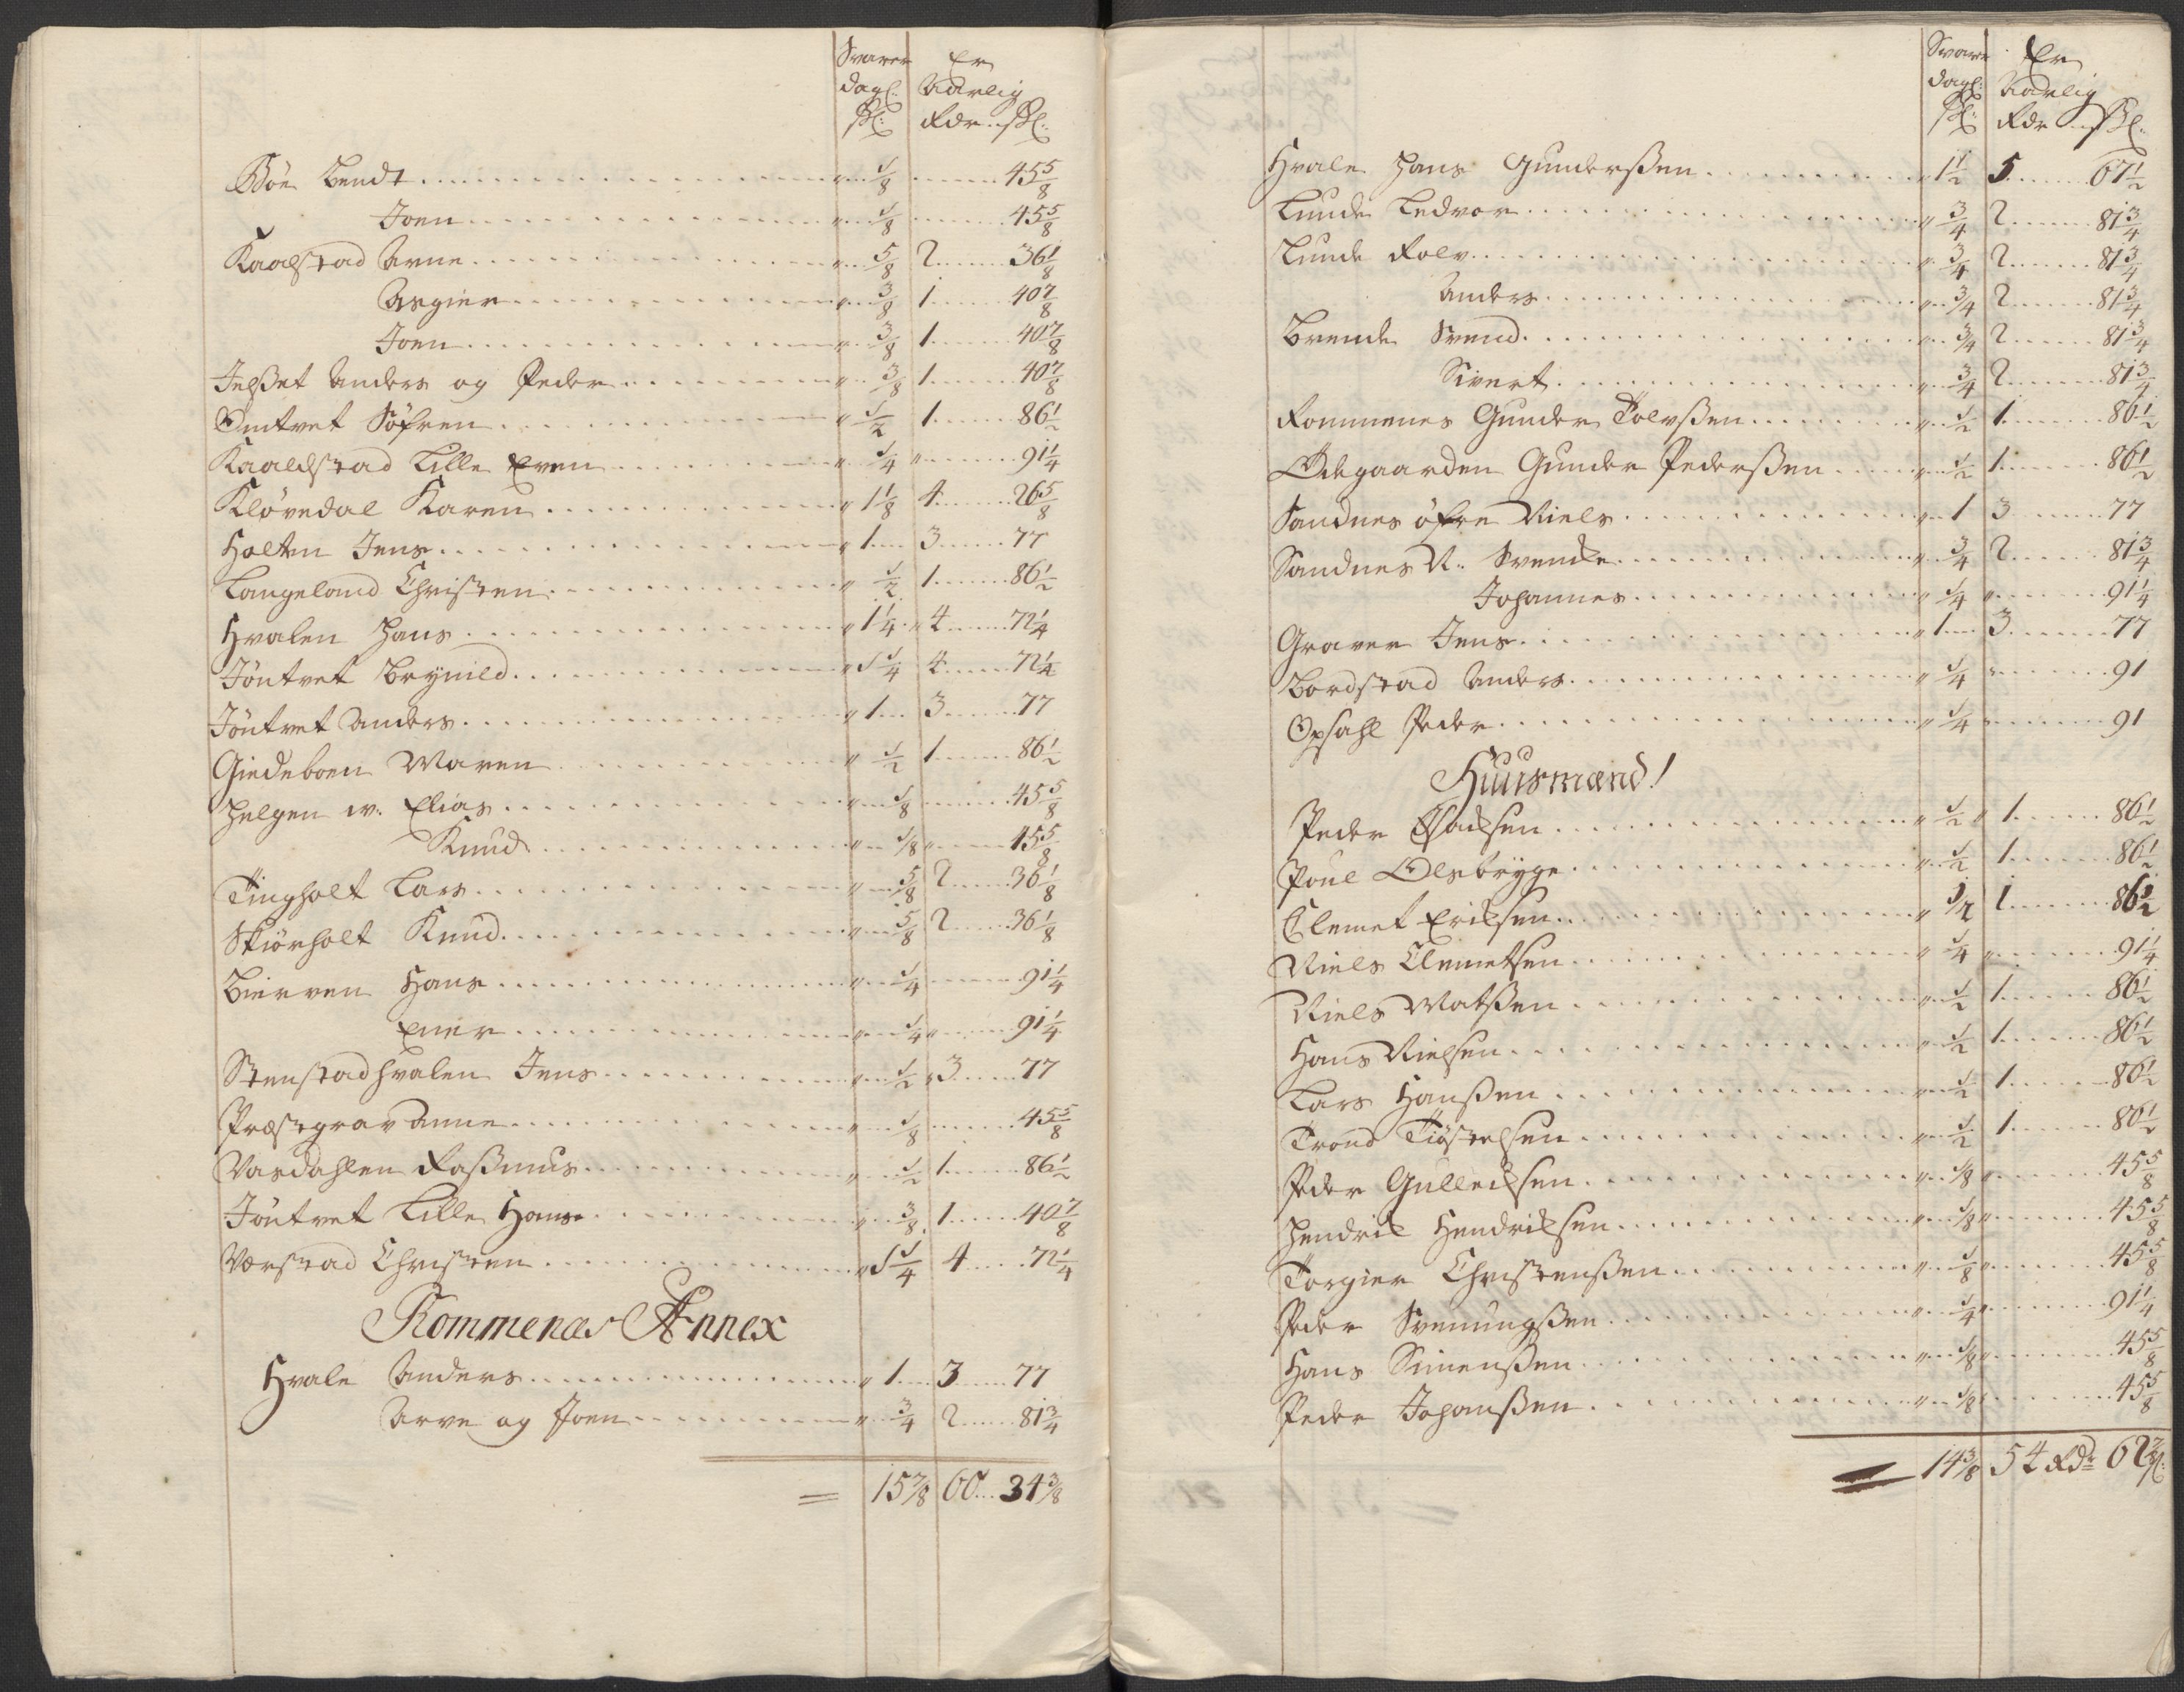 Svarer Er
dagl: Aarlig
ſkl: Rdr .. ſkl:
Böe Bendt ... " 1/8 ... 45 5/8
Joen ... " 1/8 ... 45 5/8
Kaalstad Arne ... " 5/8 2 ... 36 1/8
Asgier ... " 3/8 1 ... 40 7/8
Joen ... " 3/8 1 ... 40 7/8
Jelßet Anders og Peder ... " 3/8 1 ... 40 7/8
Omtvet Söfren ... " 1/2 1 ... 86 1/2
Kaalstad Lille Even ... " 1/4 " ... 91 1/4
Klövedal Karen ... " 1 1/8 4 ... 26 5/8
Holten Jens ... " 1 3 ... 77
Langeland Christen ... " 1/2 1 ... 86 1/2
Hvalen Hans ... " 1 1/4 " 4 ... 72 1/4
Jöntvet Brynild ... " 1 1/4 4 ... 72 1/4
Jöntvet Anders ... " 1 3 ... 77
Giedeboen Maren ... " 1/2 1 ... 86 1/2
Helgen w. Elias ... " 1/8 ... 45 5/8
Knud ... " 1/8 " ... 45 5/8
Tingholt Lars ... " 5/8 2 ... 36 1/8
Skiörholt Knud ... " 5/8 2 ... 36 1/8
Bierven Hans ... " 1/4 ... 91 1/4
Ener ... " 1/4 " ... 91 1/4
Stenstadhvalen Jens ... " 1/2 " 3 ... 77
Præstegrav Anne ... " 1/8 ... 45 5/8
Vasdahlen Raßmus ... " 1/2 1 ... 86 1/2
Jöntvet Lille Hans ... " 3/8 1 ... 40 7/8
Værstad Christen ... " 1 1/4 4 ... 72 1/4
Rommenæs Annex
Hvale Anders ... " 1 3 ... 77
Arve og Joen ... " 3/4 2 ... 81 3/4
= 15 7/8 60 ... 34 3/8
Svarer Er
dagl: Aarlig
ſkl: Rdr .. ſkl:
Hvale Hans Gunderßen ... " 1 1/2 5 ... 67 1/2
Lunde Ledvor ... " 3/4 2 ... 81 3/4
Lunde Rolv ... " 3/4 2 ... 81 3/4
Anders ... " 3/4 2 ... 81 3/4
Brende Svend ... " 3/4 2 ... 81 3/4
Sivert ... " 3/4 2 ... 81 3/4
Rommenes Gunder Tolvßen ... " 1/2 1 ... 86 1/2
Ödegaarden Gunder Pederßen ... " 1/2 1 ... 86 1/2
Sandnes öfre Niels ... " 1 3 ... 77
Sandnes N. Svenke ... " 3/4 2 ... 81 3/4
Johannes ... " 1/4 " ... 91 1/4
Graver Jens ... " 1 3 ... 77
Bordstad Anders ... " 1/4 " ... 91
Opsahl Peder ... " 1/4 " ... 91
Huusmænd!
Peder Isacksen ... " 1/2 " 1 ... 86 1/2
Poul Olsbrygge ... " 1/2 1 ... 86 1/2
Clemet Ericksen ... " 1/2 1 ... 86 1/2
Niels Clemetsen ... " 1/4 " ... 91 1/4
Niels Matßen ... " 1/2 1 ... 86 1/2
Hans Nielsen ... " 1/2 1 ... 86 1/2
Lars Hanßen ... " 1/2 1 ... 86 1/2
Trond Tiöstelsen ... " 1/2 1 ... 86 1/2
Peder Gullecksen ... " 1/8 " ... 45 5/8
Hendrick Hendricksen ... " 1/8 " ... 45 5/8
Torgier Christenßen ... " 1/8 " ... 45 5/8
Peder Svenungßen ... " 1/4 " ... 91 1/4
Hans Simenßen ... " 1/8 " ... 45 5/8
Peder Johanßen ... " 1/8 ... 45 5/8
= 14 3/8 54 Rdr 62 7/8 ſl: